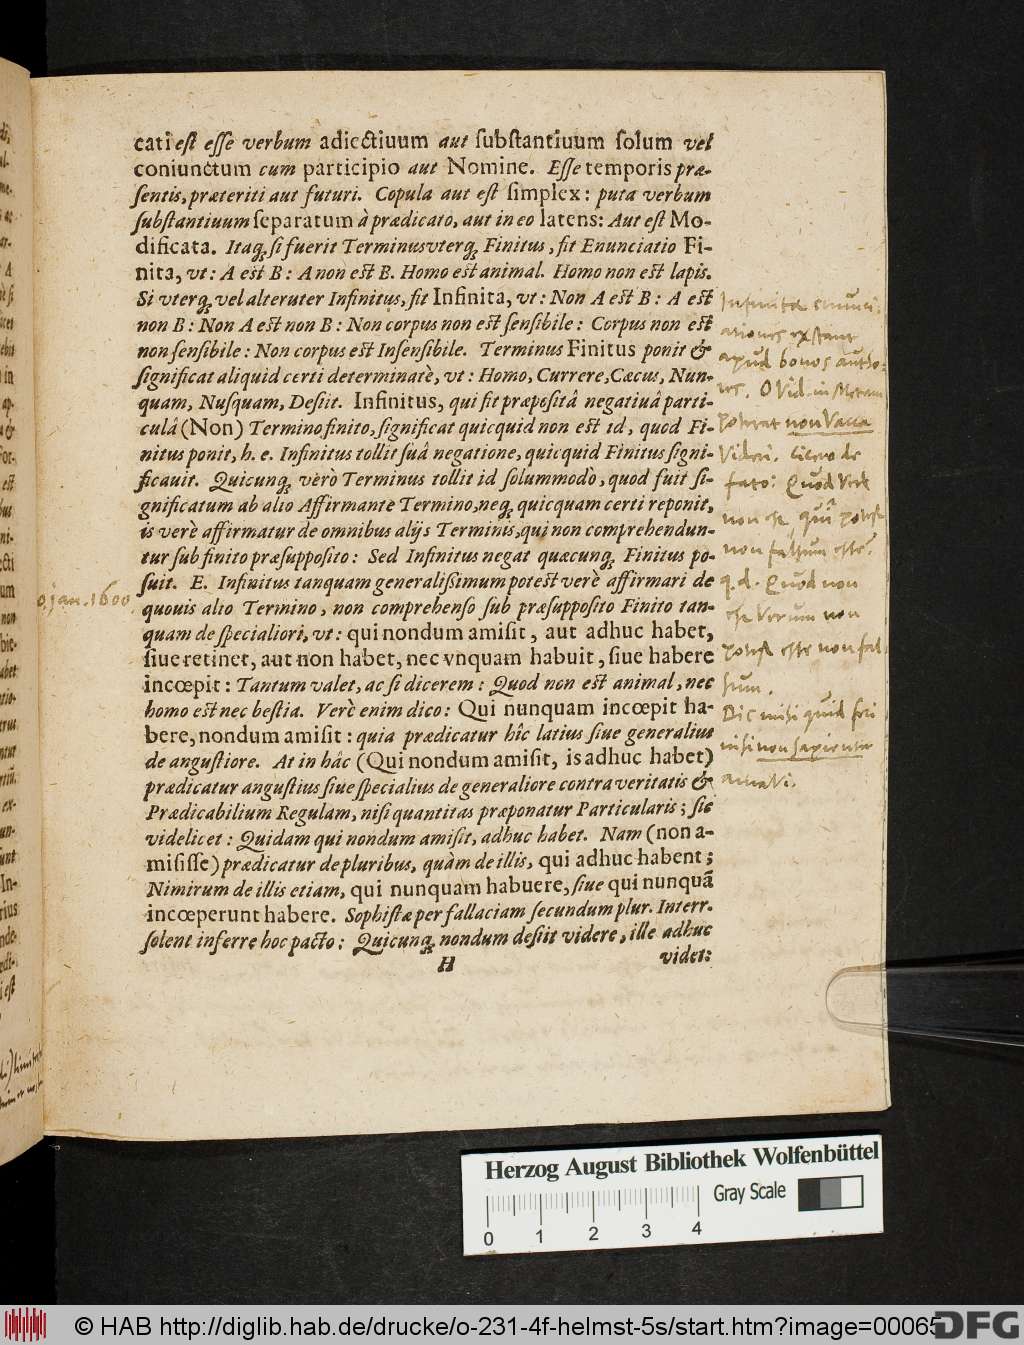 cati est esse verbum adiectiuum aut substantiuum solum vel
coniunctum cum participio aut Nomine. Esse temporis præ-
sentis, præteriti aut futuri. Copula aut est simplex: puta verbum
substantiuum separatum à prædicato, aut in eo latens: Aut est Mo-
dificata. Itaq; si fuerit Terminus vterq; Finitus, fit Enunciatio Fi-
nita, vt: A est B: A non est B. Homo est animal. Homo non est lapis.
Si vterq; vel alteruter Infinitus, fit Infinita, vt: Non A est B: A est
non B: Non A est non B: Non corpus non est sensibile: Corpus non est
non sensibile: Non corpus est Insensibile. Terminus Finitus ponit &
significat aliquid certi determinatè, vt: Homo, Currere, Cæcus, Nun-
quam, Nusquam, Desiit. Infinitus, qui fit præpositâ negatiuâ parti-
culâ (Non) Termino finito, significat quicquid non est id, quod Fi-
nitus ponit, h. e. Infinitus tollit suâ negatione, quicquid Finitus signi-
ficauit. Quicunq; verò Terminus tollit id solummodò, quod fuit si-
gnificatum ab alio Affirmante Termino, neq; quicquam certi reponit,
is verè affirmatur de omnibus alijs Terminis, qui non comprehendun-
tur sub finito præsupposito: Sed Infinitus negat quæcunq; Finitus po-
suit. E. Infinitus tanquam generalißimum potest verè affirmari de
quouis alio Termino, non comprehenso sub præsupposito Finito tan-
quam de specialiori, vt: qui nondum amisit, aut adhuc habet,
siue retinet, aut non habet, nec vnquam habuit, siue habere
incœpit: Tantum valet, ac si dicerem: Quod non est animal, nec
homo est nec bestia. Verè enim dico: Qui nunquam incœpit ha-
bere, nondum amisit: quia prædicatur hîc latius siue generalius
de angustiore. At in hâc (Qui nondum amisit, is adhuc habet)
prædicatur angustius siue specialius de generaliore contra veritatis &
Prædicabilium Regulam, nisi quantitas præponatur Particularis; sic
videlicet: Quidam qui nondum amisit, adhuc habet. Nam (non a-
misisse) prædicatur de pluribus, quàm de illis, qui adhuc habent;
Nimirum de illis etiam, qui nunquam habuere, siue qui nunquã
incœperunt habere. Sophistæ per fallaciam secundum plur. Interr.
solent inferre hoc pacto: Quicunq; nondum desiit videre, ille adhuc
H videt:
Infinitæ enunci-
ationes exstant
apud bonos autho-
res. Ovid. in Metam
poterat non Vacca
Videri. Cicero de
fato: Quod
non
non falsum esse.
q.d. Quod non
Verum non
esse non fal-
sum.
Dic mihi quid feci
nisi non sapienter
amavi.
jan. 1600
Herzog August Bibliothek Wolfenbüttel
Gray Scale
0 1 2 3 4
© HAB http://diglib.hab.de/drucke/o-231-4f-helmst-5s/start.htm?image=00065
DFG